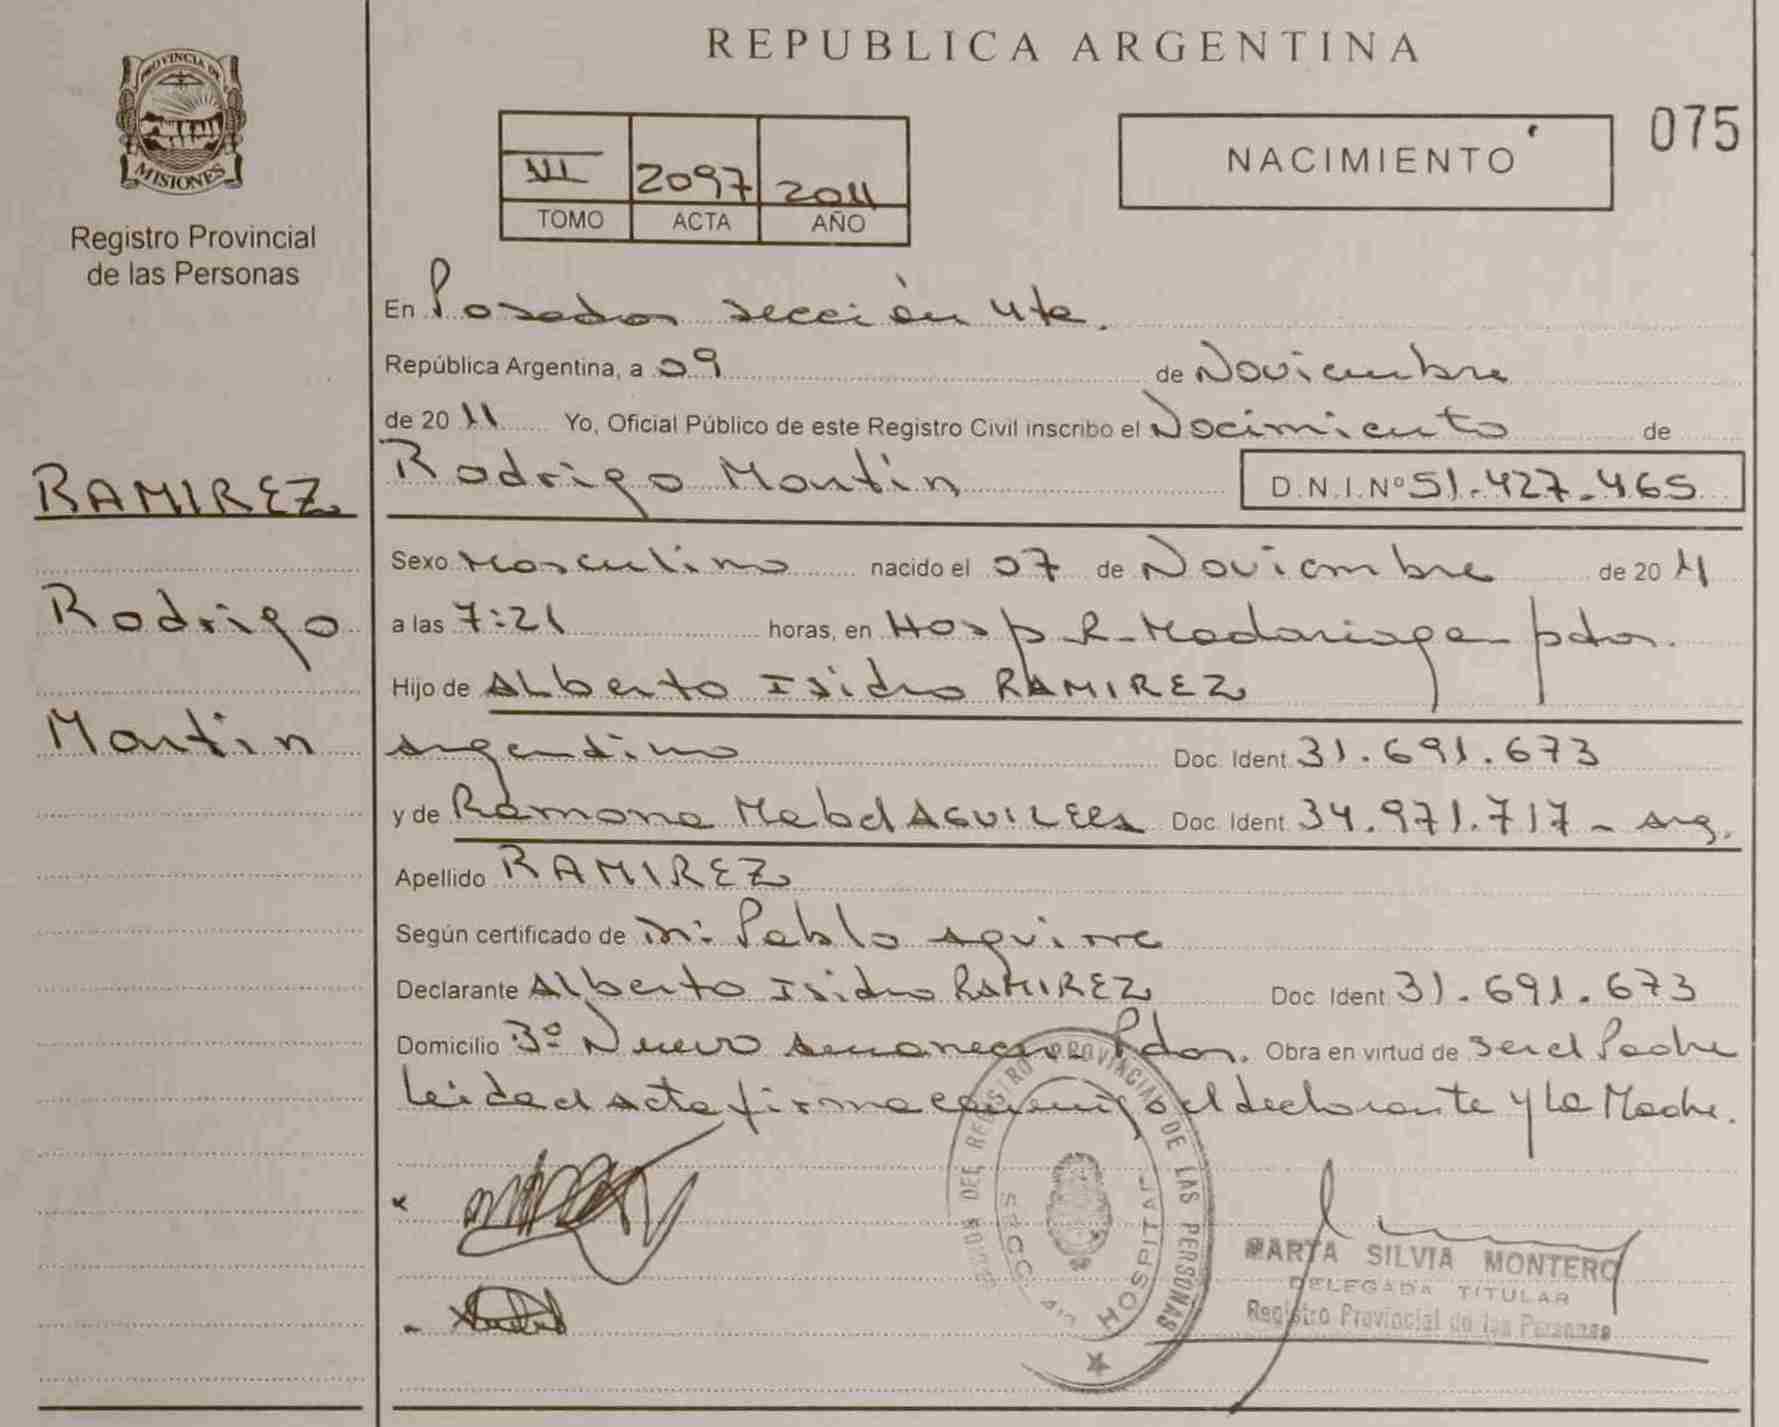 REPUBLICA ARGENTINA
PROVINCIA DE
MISIONES
Registro Provincial
de las Personas
VII 2097 2011
TOMO ACTA AÑO
NACIMIENTO
075
En Posadas sección 4ta.
República Argentina, a 09 de Noviembre
de 2011 Yo, Oficial Público de este Registro Civil inscribo el Nacimiento de
RAMIREZ
Rodrigo
Martin
Rodrigo Martin D.N.I.Nº 51.427.465
Sexo Masculino nacido el 07 de Noviembre de 2011
a las 7:21 horas, en Hosp R. Madariaga pdas.
Hijo de Alberto Isidro RAMIREZ
argentino Doc. Ident. 31.691.673
y de Ramona Mabel Doc. Ident. 34.971.717 - arg.
Apellido RAMIREZ
Según certificado de Dr. Pablo Aguirre
Declarante Alberto Isidro RAMIREZ Doc. Ident. 31.691.673
Domicilio Bº Nuevo Pdas. Obra en virtud de ser el Padre
Leida el Acta firma conmigo el declarante y La Madre.
REGISTRO PROVINCIAL DE LAS PERSONAS
HOSPITAL
MARTA SILVIA MONTERO
DELEGADA TITULAR
Registro Provincial de las Personas